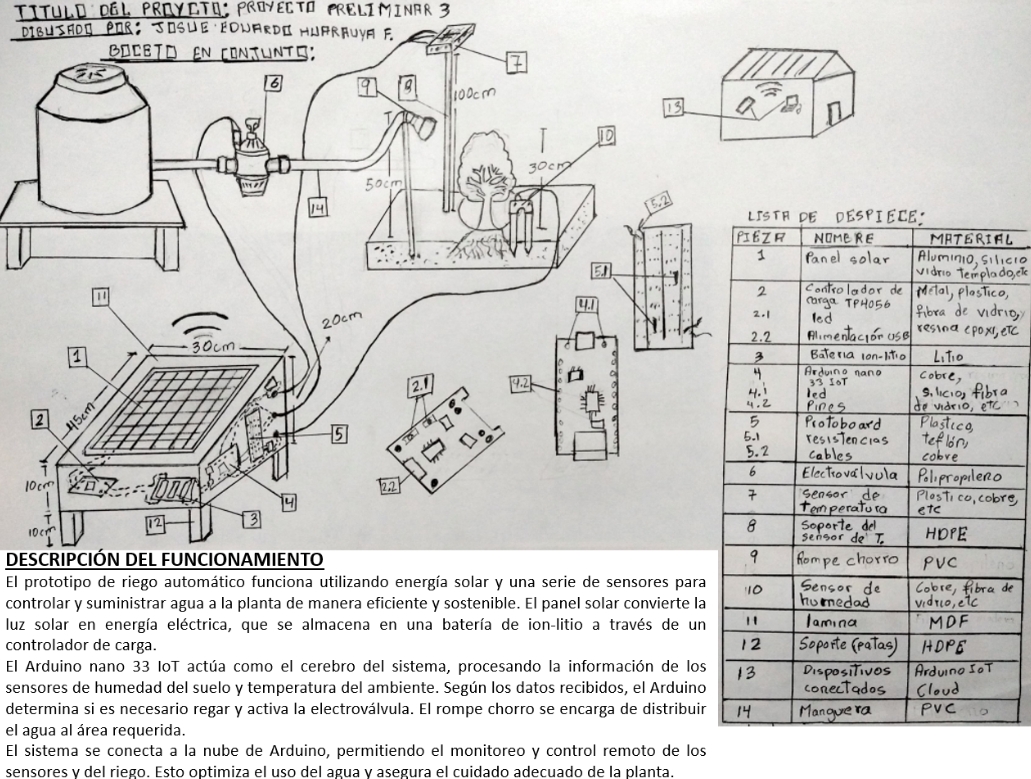 TITULO DEL PROYCTO: PROYECTO PRELIMINAR 3
DIBUJADO POR: JOSUE EDUARDO HUARAUYA F.
BOCETO EN CONJUNTO:
6
7
9
8
100cm
13
10
50cm
30cm
14
5.2
5.1
11
20cm
30cm
1
45cm
2
10cm
10cm
12
3
4
5
2.1
2.2
4.1
4.2
LISTA DE DESPIECE:
PIEZA NOMBRE MATERIAL
1 Panel solar Aluminio, silicio
vidrio templado, etc
2 Controlador de Metal, plastico,
carga TP4056
2.1 led fibra de vidrio,
2.2 Alimentación USB resina epoxi, etc
3 Bateria ion-litio Litio
4 Arduino nano cobre,
33 IoT
4.1 led silicio, fibra
4.2 Pines de vidrio, etc
5 Protoboard Plastico,
5.1 resistencias teflón,
5.2 cables cobre
6 Electroválvula Polipropileno
7 Sensor de Plastico, cobre,
temperatura etc
8 Soporte del HDPE
sensor de T.
9 Rompe chorro PVC
10 Sensor de Cobre, fibra de
humedad vidrio, etc
11 lamina MDF
12 Soporte (patas) HDPE
13 Dispositivos Arduino IoT
conectados Cloud
14 Manguera PVC
DESCRIPCIÓN DEL FUNCIONAMIENTO
El prototipo de riego automático funciona utilizando energía solar y una serie de sensores para
controlar y suministrar agua a la planta de manera eficiente y sostenible. El panel solar convierte la
luz solar en energía eléctrica, que se almacena en una batería de ion-litio a través de un
controlador de carga.
El Arduino nano 33 IoT actúa como el cerebro del sistema, procesando la información de los
sensores de humedad del suelo y temperatura del ambiente. Según los datos recibidos, el Arduino
determina si es necesario regar y activa la electroválvula. El rompe chorro se encarga de distribuir
el agua al área requerida.
El sistema se conecta a la nube de Arduino, permitiendo el monitoreo y control remoto de los
sensores y del riego. Esto optimiza el uso del agua y asegura el cuidado adecuado de la planta.